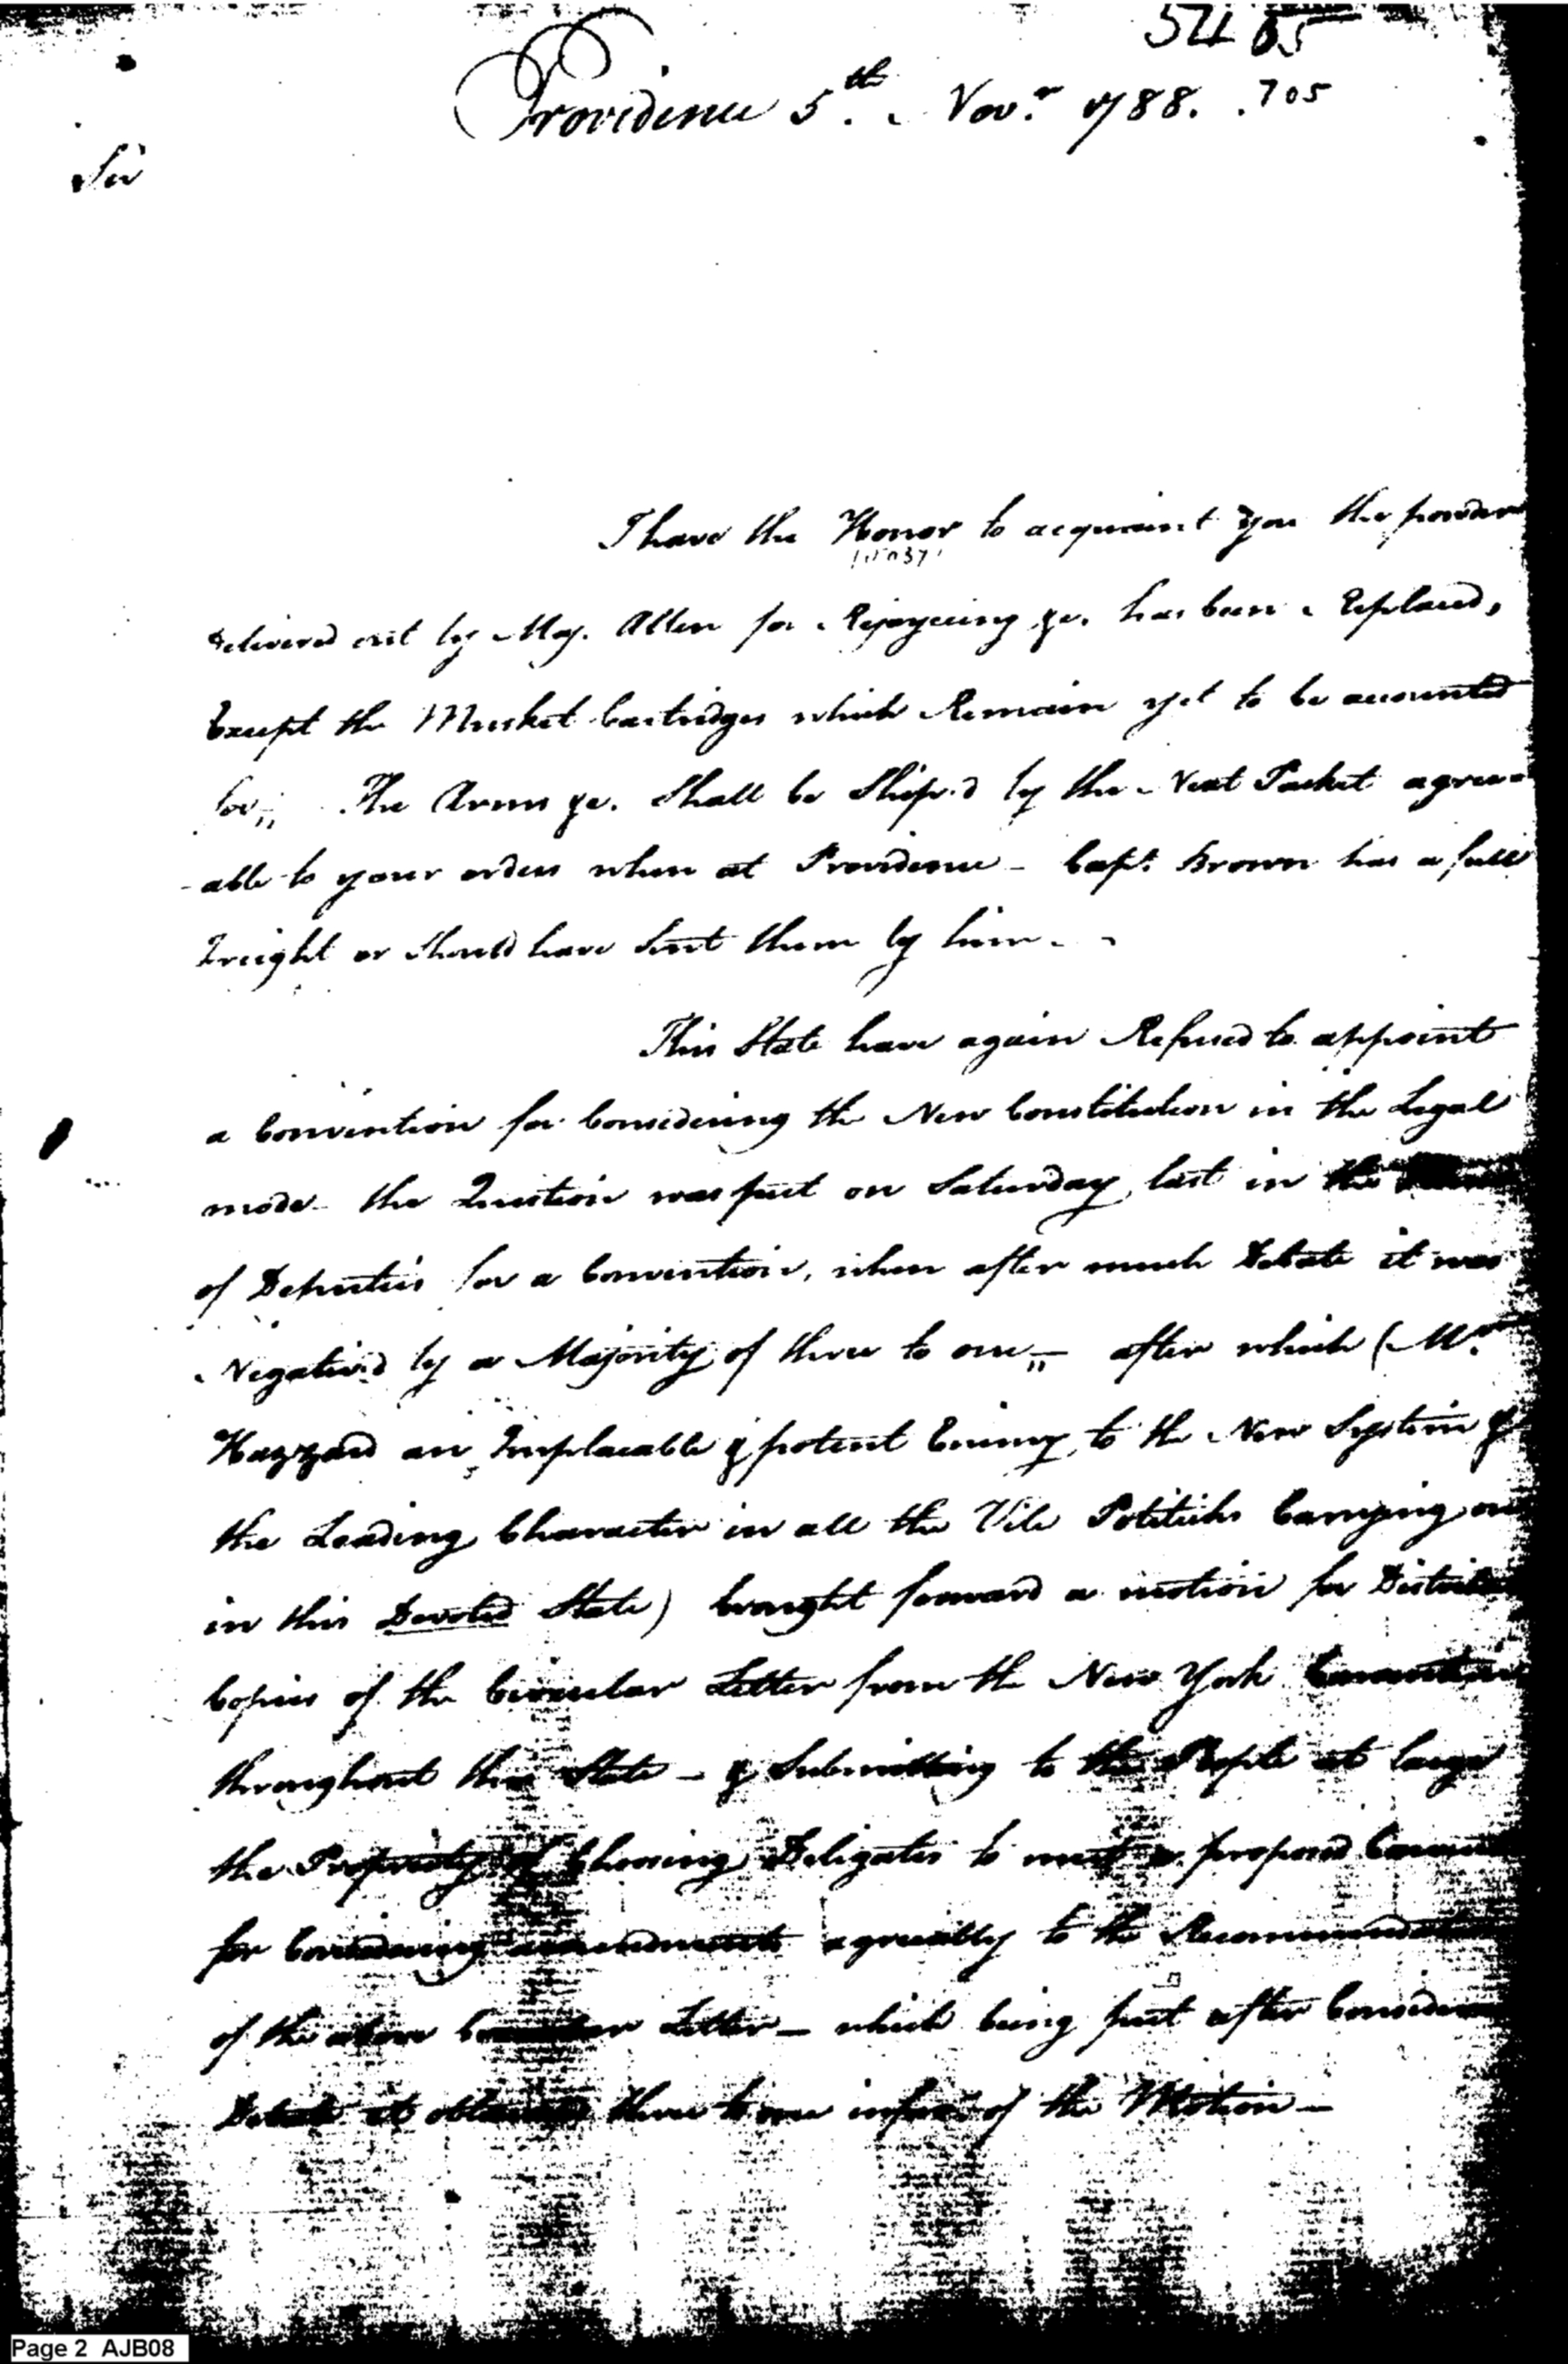 705
Providence 5th. Novr. 1788.
Sir
I have the Honor to acquaint you the powder
delivered out by Maj. Allen for Rejoyceing &c. has been Replaced,
Except the Musket Cartridges which Remain yet to be accounted
for,, The Arms &c. Shall be Ship.d by the Next Packet agree-
-able to your orders when at Providence - Capt. Brown has a full
Freight or Should have Sent them by him -
This State have again Refused to appoint
a Convention for Considering the New Constitution in the Legal
mode - the Question was put on Saturday last in the
of Deputies for a Convention, when after much Debate it was
Negativ.d by a Majority of three to one,, - after which (Mr.
Hazzard an Implacable & potent Enimy to the New System &
the Leading Character in all the Vile Politicks Carrying on
in this Devoted State) brought forward a motion for
Copies of the Circular Letter from the New York Convention
throughout the State - & Submitting to the People at large
the Propriety of Choosing Deligates to meet a proposed
for Considering amendments agreeably to the
of the above Circular Letter - which being put after
Debate it obtained three to one in favor of the Motion -
Page 2 AJB08